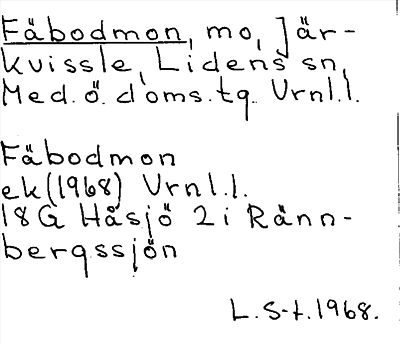 Fäbodmon, mo, Jär-
kvissle, Lidens sn,
Med. ö. doms.tg. Vrnl.l.
Fäbodmon
ek (1968) Vrnl.l.
18G Håsjö 2i Ränn-
bergssjön
L. S-t. 1968.